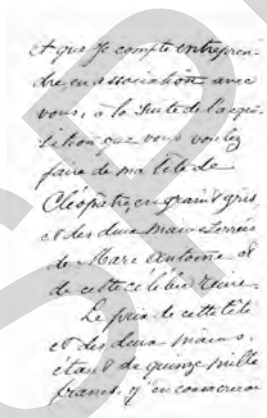 et que je compte entrepren-
dre, en association avec
vous, à la suite de l'acqui-
sition que vous voulez
faire de ma tête de
Cléopâtre, en granit gris
et des deux mains terrées
de Marc Antoine et
de cette célèbre reine.
Le prix de cette tête
et des deux mains,
étant de quinze mille
francs, j'en consacrerai